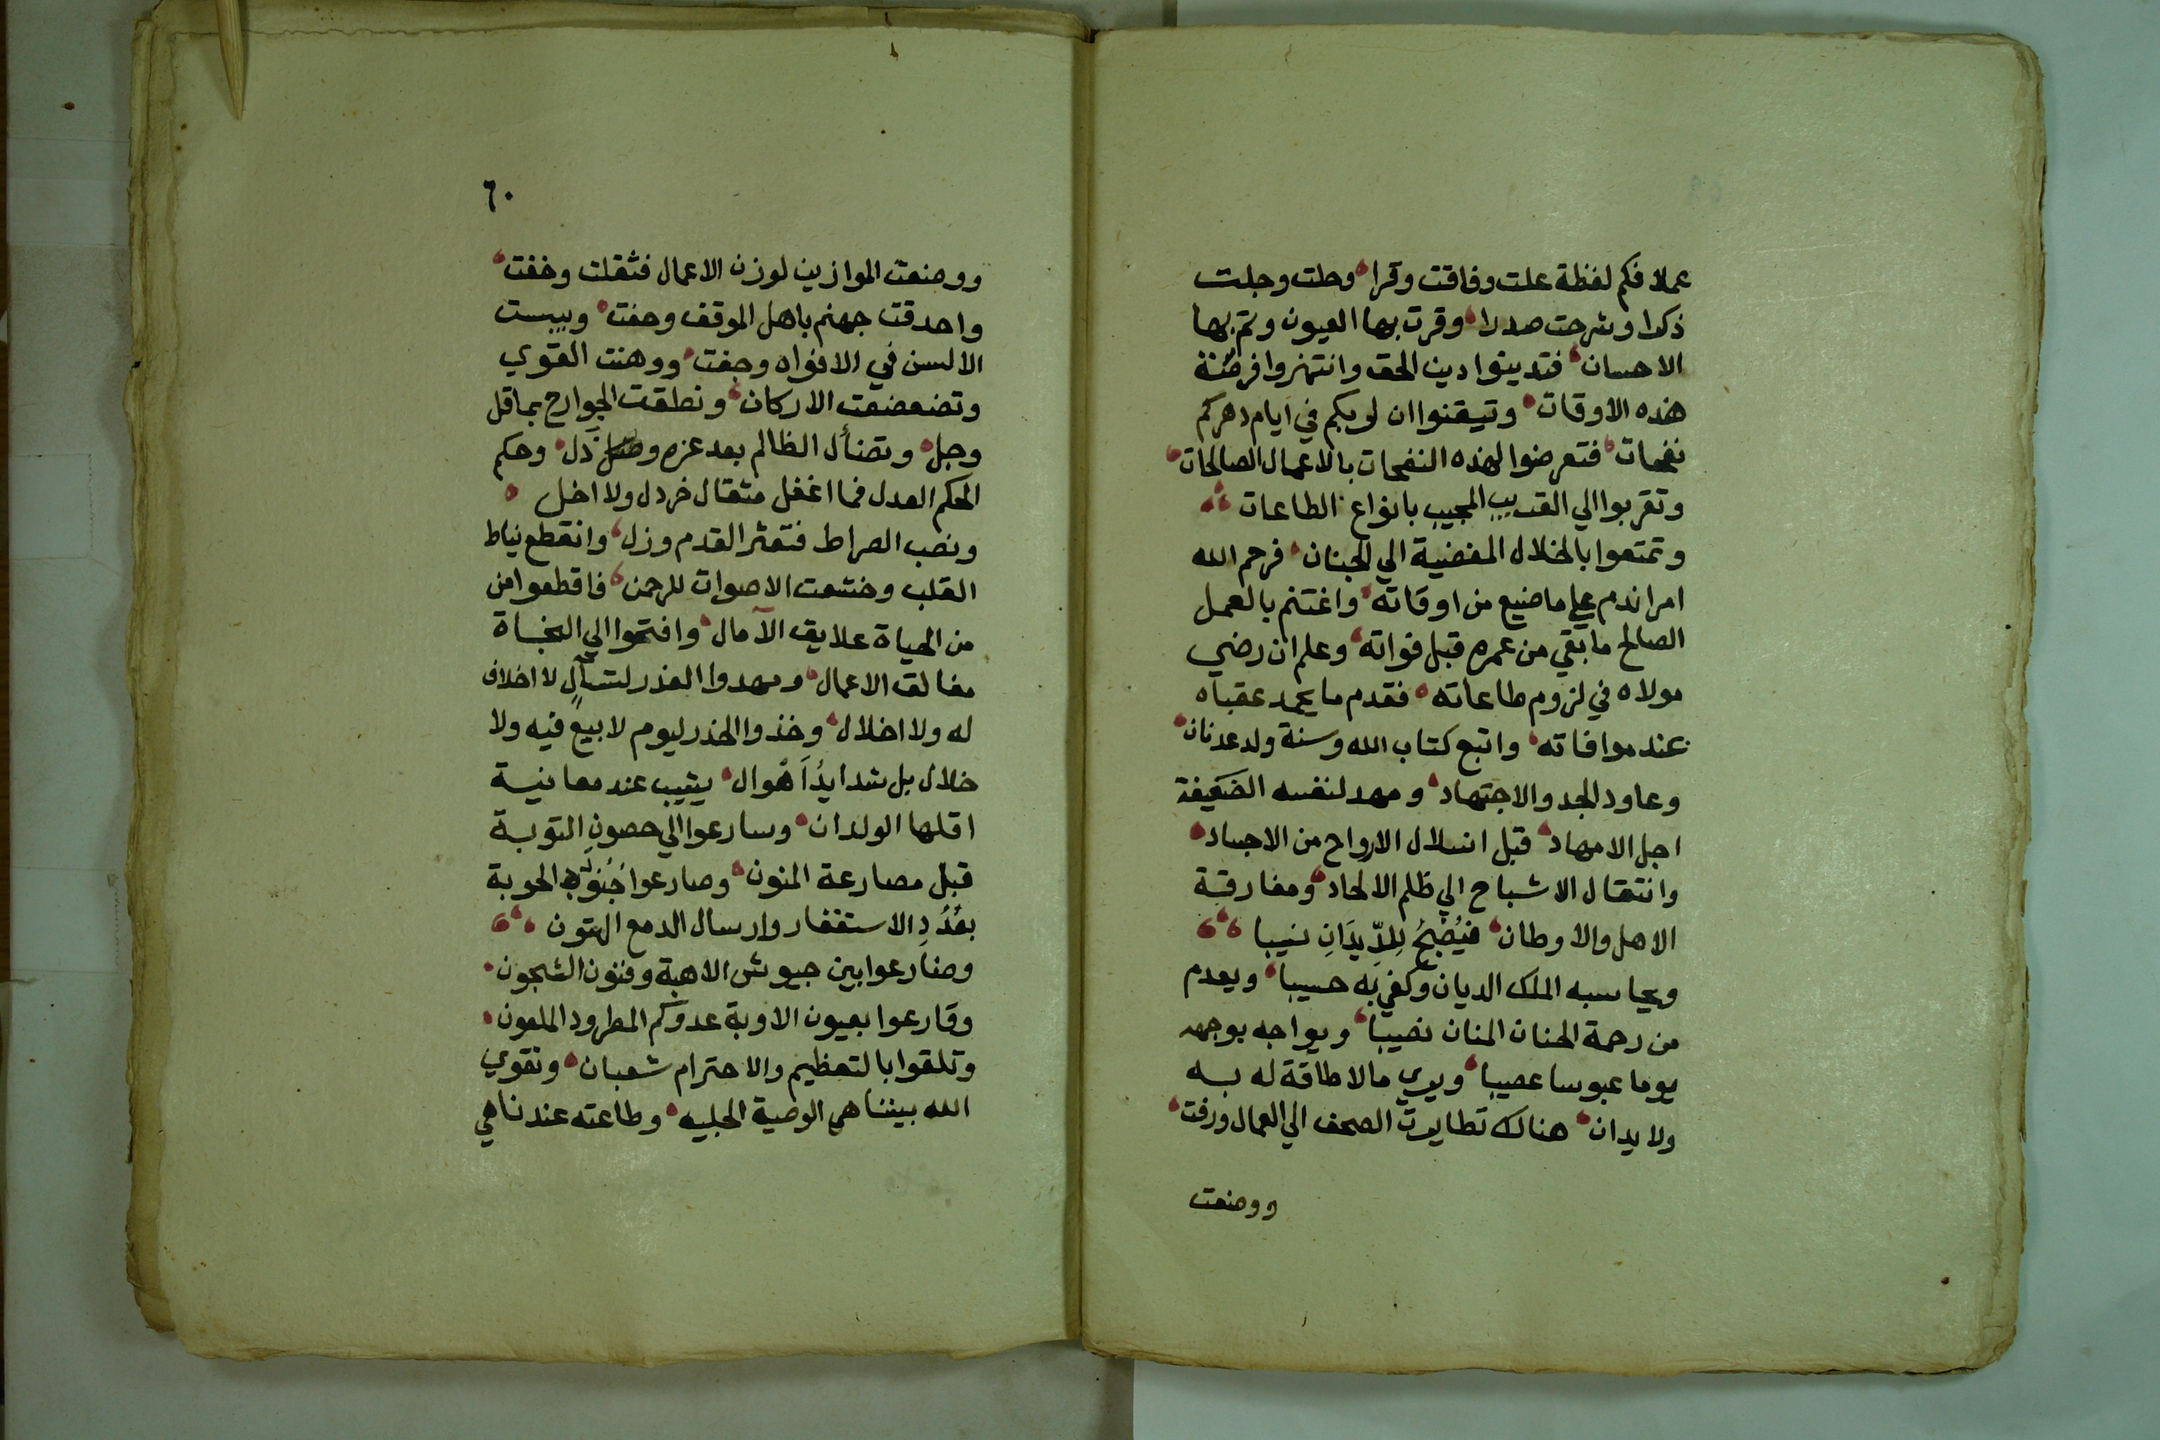 عملا فكم لفظة علت وفاقت وقرا وحلت وجلت
ذكرا وشرحت صدرا وقرت بها العيون وتم بها
الاحسان فتدينوا دين الحق وانتهزوا فرصة
هذه الاوقات وتيقنوا ان لربكم في ايام دهركم
نفحات فتعرضوا لهذه النفحات بالاعمال الصالحات
وتقربوا الي القريب المجيب بانواع الطاعات
وتمتعوا بالخلال المفضية الي الجنان فرحم الله
امرا ندم علي ما ضيع من اوقاته واغتنم بالعمل
الصالح ما بقي من عمره قبل فواته وعلم ان رضي
مولاه في لزوم طاعاته فقدم ما يحمد عقباه
عند موافاته واتبع كتاب الله وسنة ولد عدنان
وعاود الجد والاجتهاد ومهد لنفسه الضعيفة
اجل الامهاد قبل انسلال الارواح من الاجساد
وانتقال الاشباح الي ظلم الالحاد ومفارقة
الاهل والاوطان فيُصْبِحُ لِلدِّيدَانِ نهيبا
ويحاسبه الملك الديان وكفي به حسيبا ويعدم
من رحمة الحنان المنان نصيبا ويواجه بوجهه
يوما عبوسا عصيبا ويري ما لا طاقة له به
ولا يدان هنالك تطايرت الصحف الي العمال ورفت
ووضعت
٦٠
ووضعت الموازين لوزن الاعمال فثقلت وخفت
واحدقت جهنم باهل الموقف وحفت ويبست
الالسن في الافواه وجفت ووهنت القوي
وتضعضعت الاركان ونطقت الجوارح بما قل
وجل وتضأل الظالم بعد عزه وذل وحكم
الحكم العدل فما اغفل مثقال خردل ولا اخل
ونصب الصراط فتعثر القدم وزل وانقطع نياط
القلب وخشعت الاصوات للرحمن فاقطعوا من
من الحياة علايق الآمال وافتحوا الي النجاة
مغالق الاعمال ومهدوا العذر لتسآل لا اخلاف
له ولا اخلال وخذوا الحذر ليوم لا بيعٍ فيه ولا
خلال بل شدايدُ اَهْوال يشيب عند معاينية
اقلها الولدان وسارعوا الي حصون التوبة
قبل مصارعة المنون وصارعوا جُنُودَ الحوبة
بعُدُدِ الاستغفار وارسال الدمع الهتون
وضارعوا بين جيوش الاهبة وفنون الشجون
وقارعوا بعيون الاوبة عدوكم المطرود الملعون
وتلقوا بالتعظيم والاحترام شعبان وتقوي
الله بيننا هي الوصية الجليه وطاعته عندنا هي